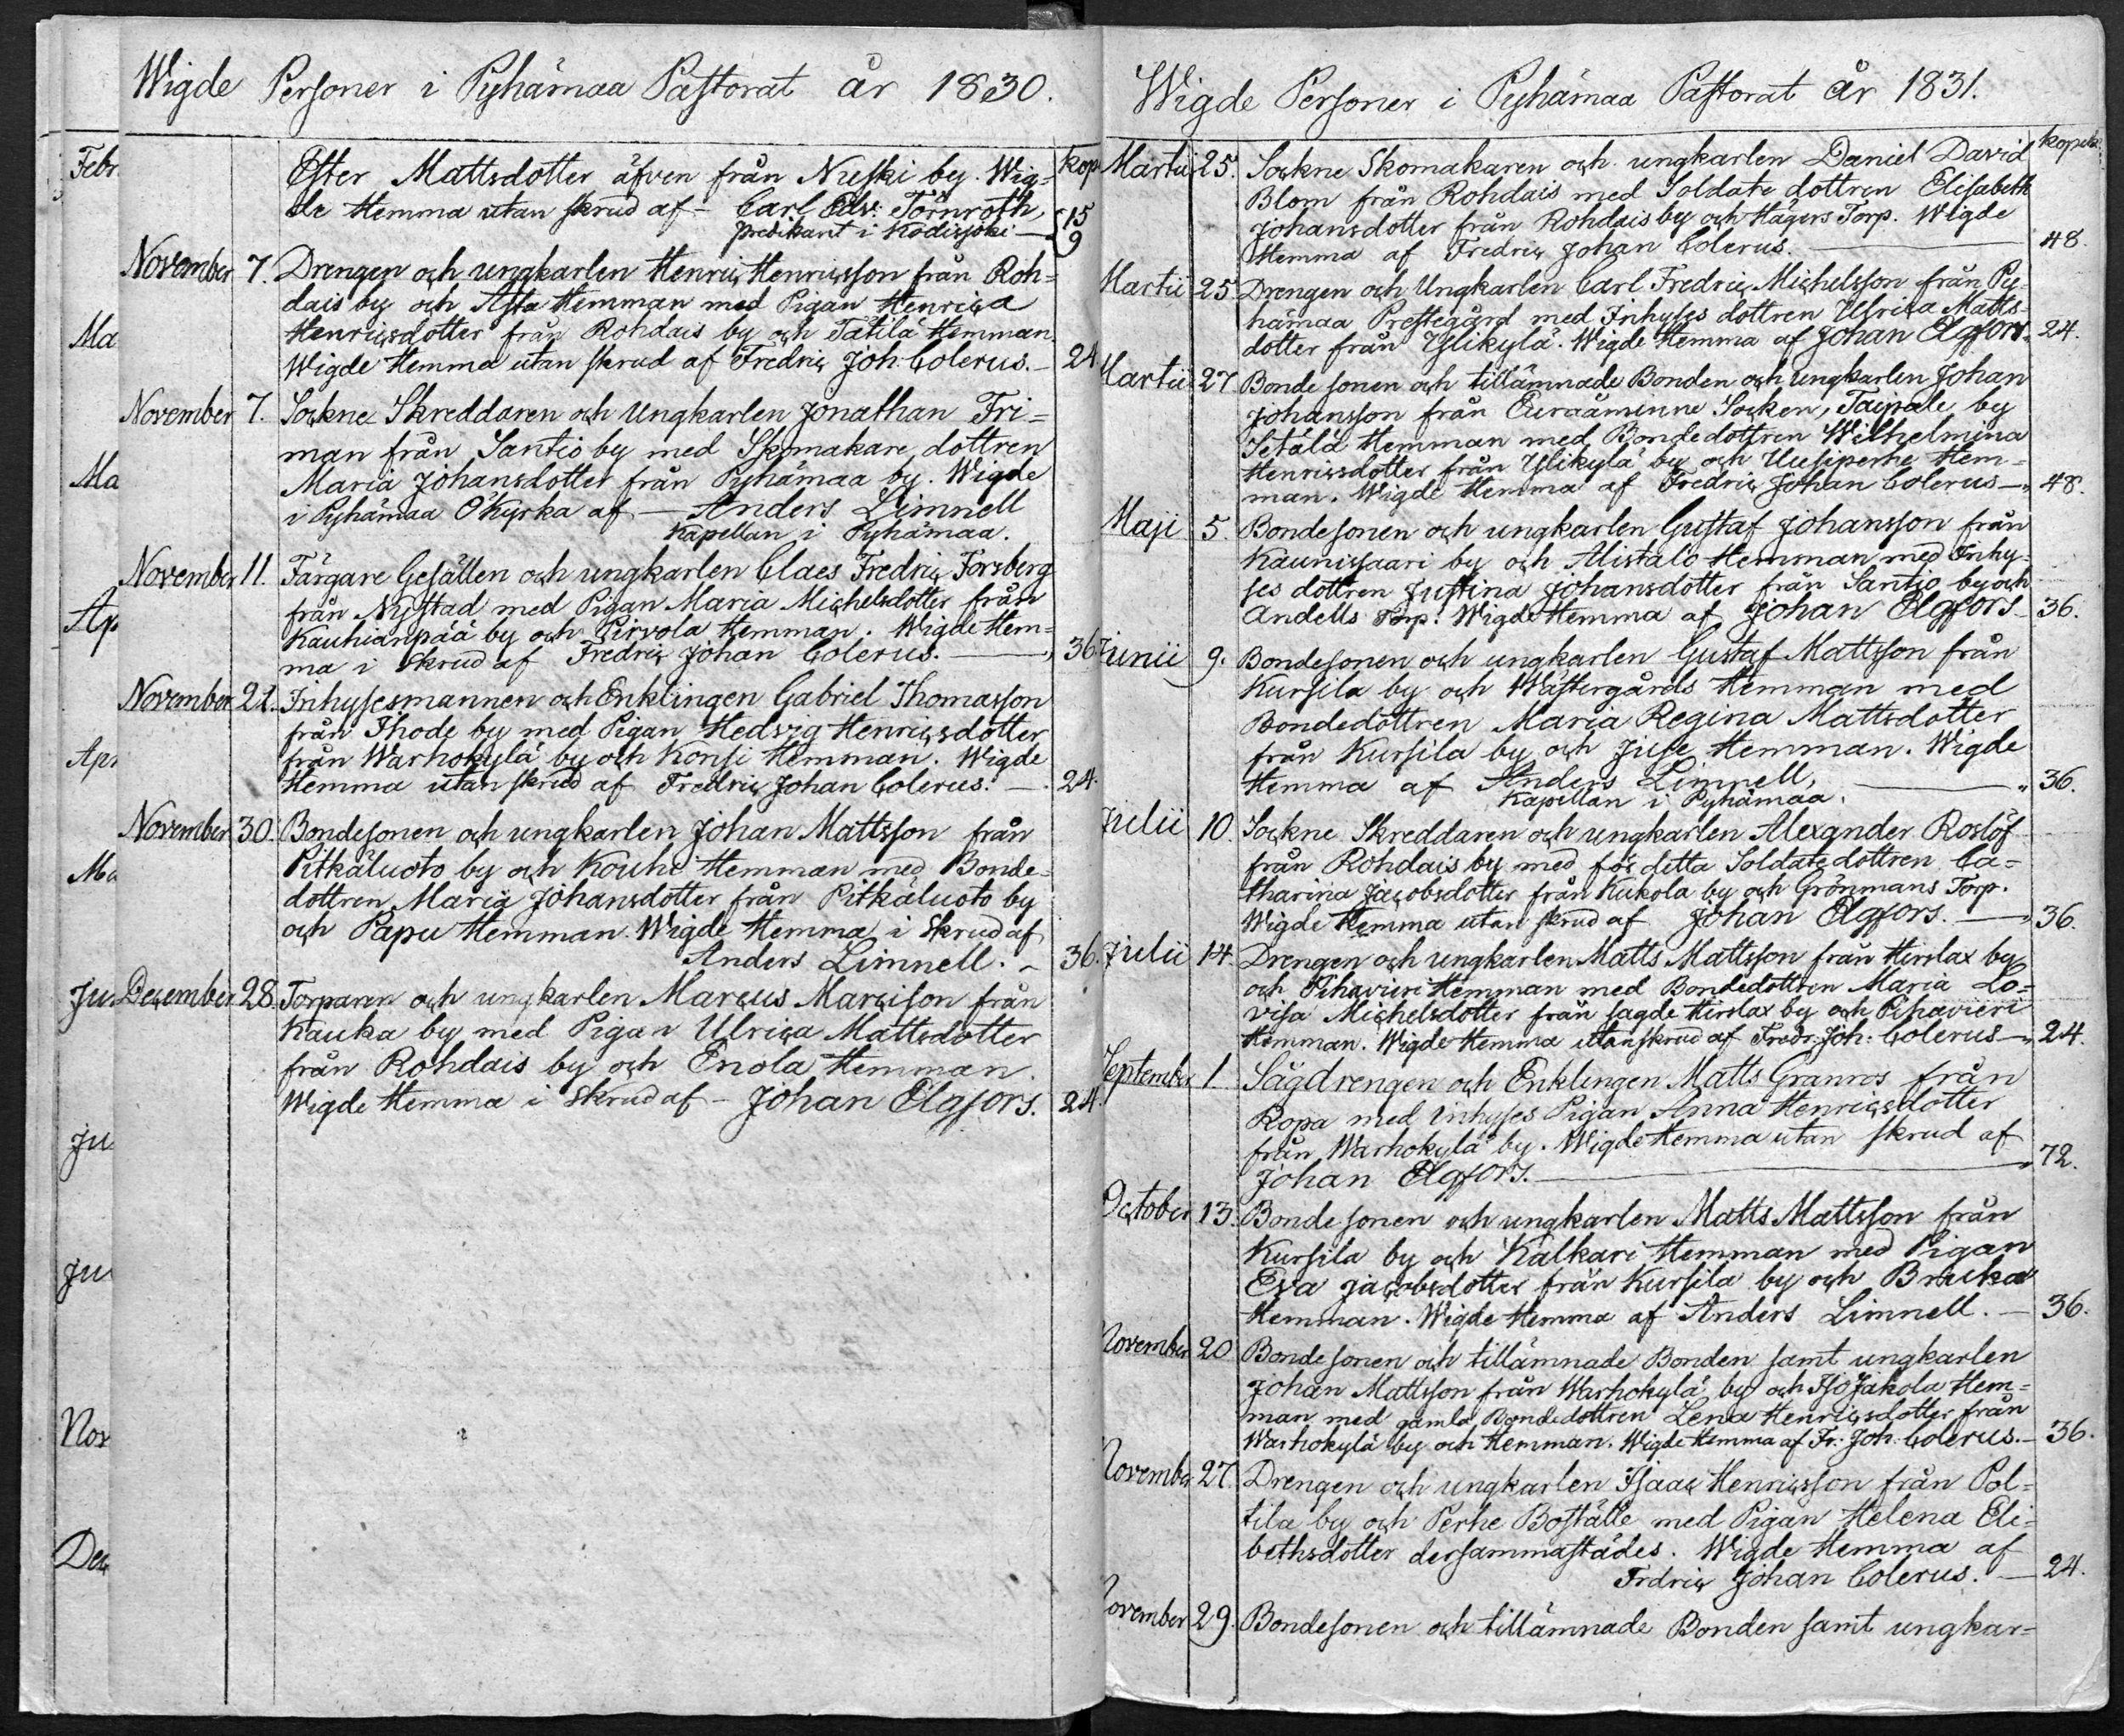 Wigde Personer i Pyhämaa Pastorat år 1830.
Kop
Ester Mattsdotter äfven från Nuski by. Wig=
de Hemma utan skrud af – Carl Edv: Törnroth,
predikant i Kodisjoki — 15
9
November 7. Drengen och ungkarlen Henric Henricsson från Roh=
dais by och Asta Hemman med Pigan Henrica
Henricsdotter från Rohdais by och Tätilä Hemman.
Wigde Hemma utan skrud af Fredric Joh: Colerus. – 24
November 7. Sockne Skreddaren och Ungkarlen Jonathan Fri=
man från Santio by med Skomakare dottren
Maria Johansdotter från Pyhämaa by. Wigde
i Pyhämaa Ö Kyrka af – Anders Limnell
Kapellan i Pyhämaa.
November 11. Färgare Gesällen och ungkarlen Claes Fredric Forsberg
från Nystad med Pigan Maria Michelsdotter från
Kauhianpää by och Pirvola Hemman. Wigde Hem=
ma i Skrud af Fredric Johan Colerus. — 36
November 21. Inhysesmannen och Enklingen Gabriel Thomasson
från Ihode by med Pigan Hedvig Henricsdotter
från Warhokylä by och Konsi Hemman. Wigde
Hemma utan skrud af Fredric Johan Colerus. — 24.
November 30. Bondesonen och ungkarlen Johan Mattsson från
Pitkäluoto by och Kouhi Hemman med Bonde=
dottren Maria Johansdotter från Pitkäluoto by
och Papu Hemman. Wigde Hemma i Skrud af
Anders Limnell. – 36.
December 28. Torparen och ungkarlen Marcus Marcisson från
Kauka by med Pigan Ulrica Mattsdotter
från Rohdais by och Enola Hemman.
Wigde Hemma i Skrud af – Johan Elgfors. 24.
Febr
Ma
Ma
Ap
Apr
Ma
Ju
Ju
Ju
Nov
Dec
Wigde Personer i Pyhämaa Pastorat år 1831.
kopek:
Martii 25. Sockne Skomakaren och ungkarlen Daniel David
Blom från Rohdais med Soldate dottren Elisabeth
Johansdotter från Rohdais by och Hägers Torp. Wigde
Hemma af Fredric Johan Colerus. — 48.
Martii 25. Drengen och Ungkarlen Carl Fredric Michelsson från Py=
hämaa Prestegård med Inhyses dottren Ulrica Matts=
dotter från Ylikylä. Wigde Hemma af Johan Elgfors. 24.
Martii 27. Bonde sonen och tillämnade Bonden och ungkarlen Johan
Johansson från Euraåminne Socken, Taipale by
Setälä Hemman med Bondedottren Wilhelmina
Henricsdotter från Ylikylä by och Uusiperhe Hem=
man. Wigde Hemma af Fredric Johan Colerus — 48.
Maji 5. Bondesonen och ungkarlen Gustaf Johansson från
Kaunissaari by och Alistalo Hemman med Inhy=
ses dottren Justina Johansdotter från Santio by och
Andells Torp. Wigde Hemma af Johan Elgfors – 36.
Junii 9. Bondesonen och ungkarlen Gustaf Mattsson från
Kursila by och Wästergårds Hemman med
Bondedottren Maria Regina Mattsdotter
från Kursila by och Juse Hemman. Wigde
Hemma af Anders Limnell, — " 36.
Kapellan i Pyhämaa.
Julii 10. Sockne Skreddaren och ungkarlen Alexander Roslöf
från Rohdais by med för detta Soldatedottren Ca=
tharina Jacobsdotter från Kukola by och Grönmans Torp.
Wigde Hemma utan skrud af Johan Elgfors. — 36.
Julii 14. Drengen och ungkarlen Matts Mattsson från Hirslax by
och Pihavieri Hemman med Bondedottren Maria Lo=
visa Michelsdotter från sagde Hirslax by och Pihavieri
Hemman. Wigde Hemma utan skrud af Fredr: Joh: Colerus — 24.
September 1. Sågdrengen och Enklingen Matts Granros från
Ropa med Inhyses Pigan Anna Henricsdotter
från Warhokylä by. Wigde Hemma utan skrud af
Johan Elgfors. — " 72.
October 13. Bonde sonen och ungkarlen Matts Mattsson från
Kursila by och Kalkari Hemman med Pigan
Eva Jacobsdotter från Kursila by och Bruka
Hemman. Wigde Hemma af Anders Limnell. — 36.
November 20. Bonde sonen och tillämnade Bonden samt ungkarlen
Johan Mattsson från Warhokylä by och Iso Jakola Hem=
man med gamla Bondedottren Lena Henricsdotter från
Warhokylä by och Hemman. Wigde Hemma af Fr: Joh: Colerus. – 36.
November 27. Drengen och ungkarlen Isaac Henricsson från Pol=
tila by och Perhe Boställe med Pigan Helena Eli=
bethsdotter dersammastädes. Wigde Hemma af
Frdric Johan Colerus. — 24.
November 29. Bondesonen och tillämnade Bonden samt ungkar=